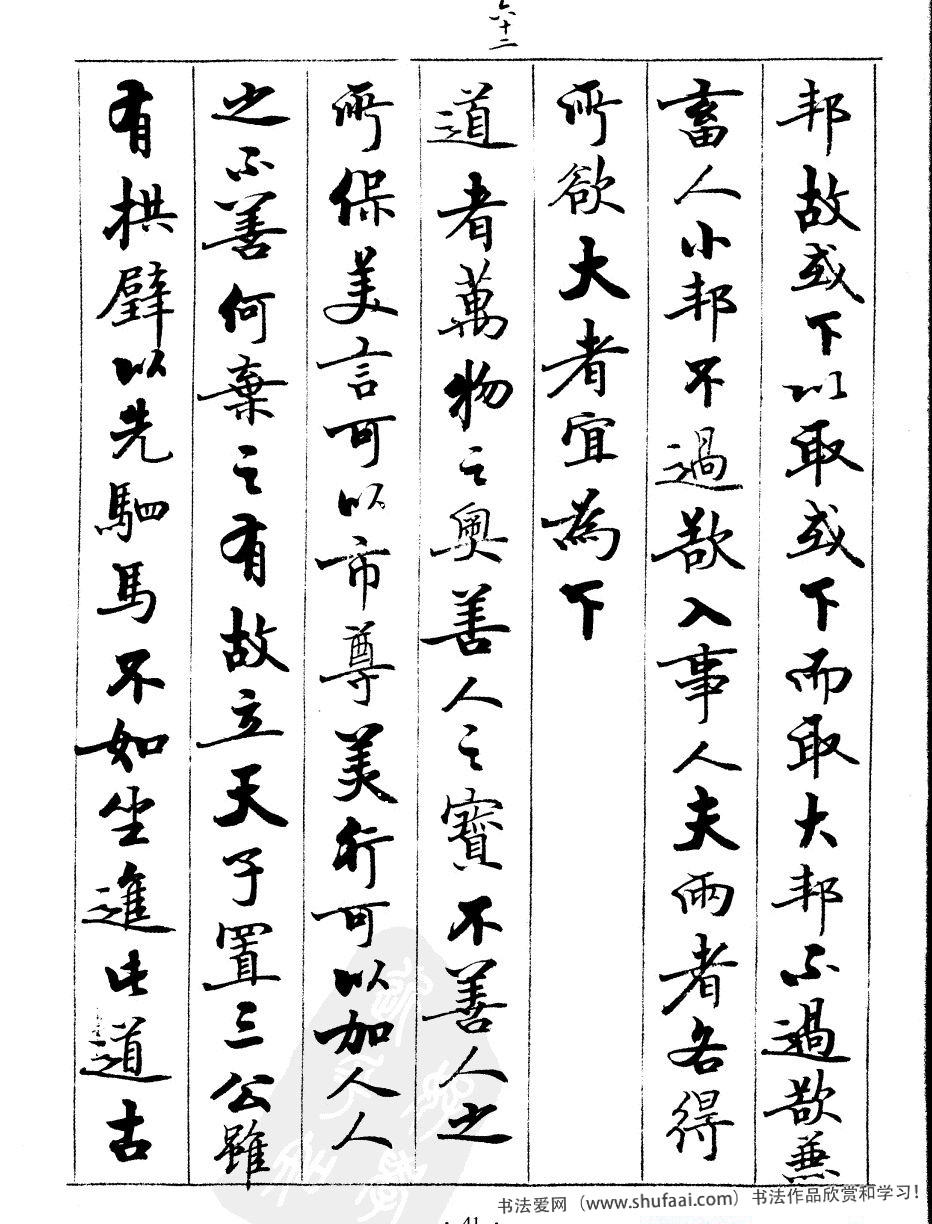 六十二
邦故或下以取或下而取大邦不過欲兼
畜人小邦不過欲入事人夫兩者各得
所欲大者宜為下
道者萬物之奧善人之寶不善人之
所保美言可以市尊美行可以加人人
之不善何棄之有故立天子置三公雖
有栱璧以先駟馬不如坐進此道古
书法爱网（www.shufaai.com）书法作品欣赏和学习！
· 41 ·